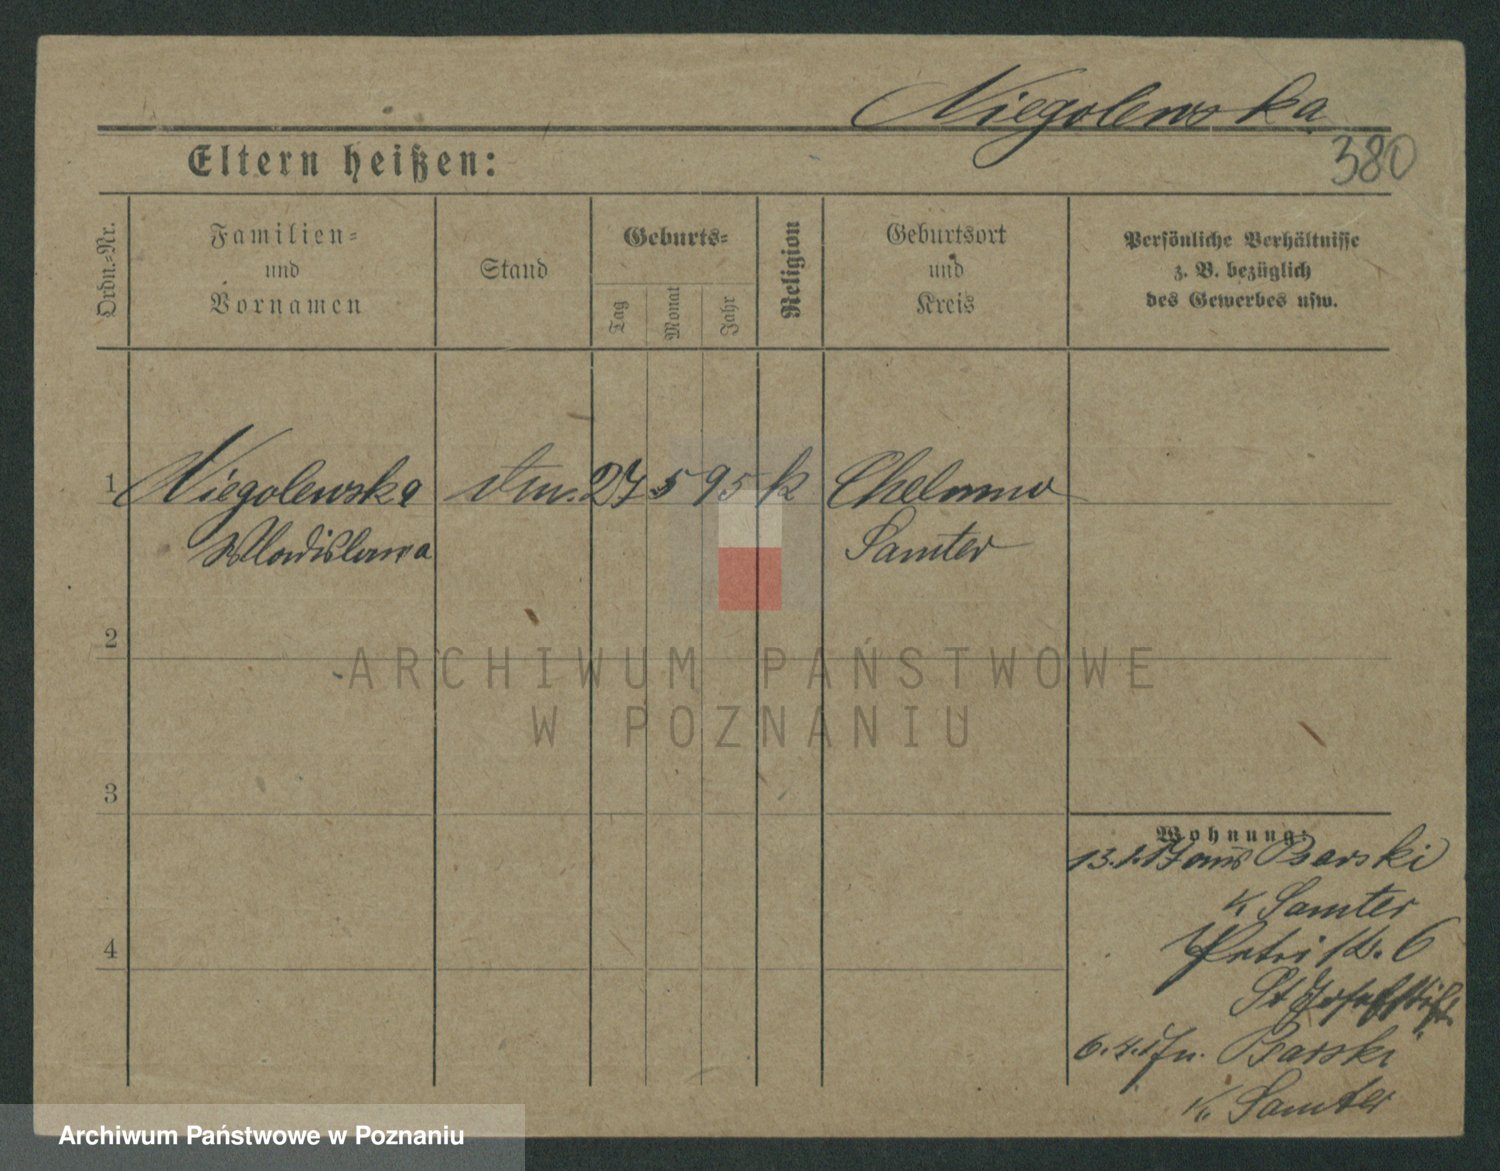 Niegolewska
380
Eltern heißen:
Ordn.-Nr.
Familien-
und
Vornamen
Stand
Geburts-
Tag
Monat
Jahr
Religion
Geburtsort
und
Kreis
Persönliche Verhältnisse
z. B. bezüglich
des Gewerbes usw.
1 Niegolewska 27 5 95 k Chelmno
Wladislawa Samter
2
ARCHIWUM PAŃSTWOWE
W POZNANIU
3
Wohnung:
13.1.17 aus Psarski
K Samter
Petri 6
St Josefstift
6.4.17 n. Psarski
K. Samter
4
Archiwum Państwowe w Poznaniu